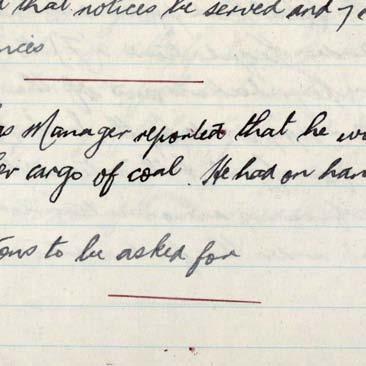 that notices be served and 7
that he
Manager reported that he
cargo of coal. He had on han
to be asked for